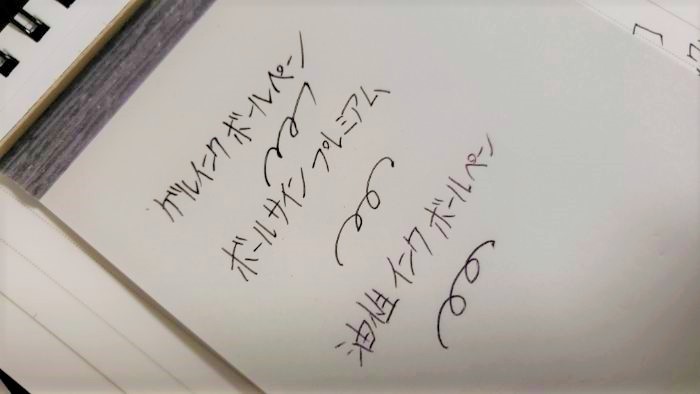 ゲルインクボールペン
ボールサインプレミアム
油性インクボールペン